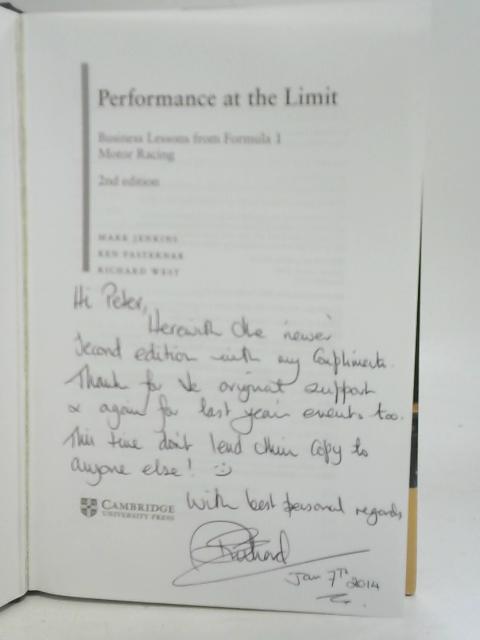 Performance at the Limit
Business Lessons from Formula 1
Motor Racing
2nd edition
MARK JENKINS
KEN PASTERNAK
RICHARD WEST
Hi Peter,
Herewith the 'newer'
Second edition with my Compliments.
Thanks for the original support
& again for last years events too.
This time don't lend this Copy to
anyone else! :-)
With best personal regards,
Richard
Jan 7th 2014
CAMBRIDGE
UNIVERSITY PRESS